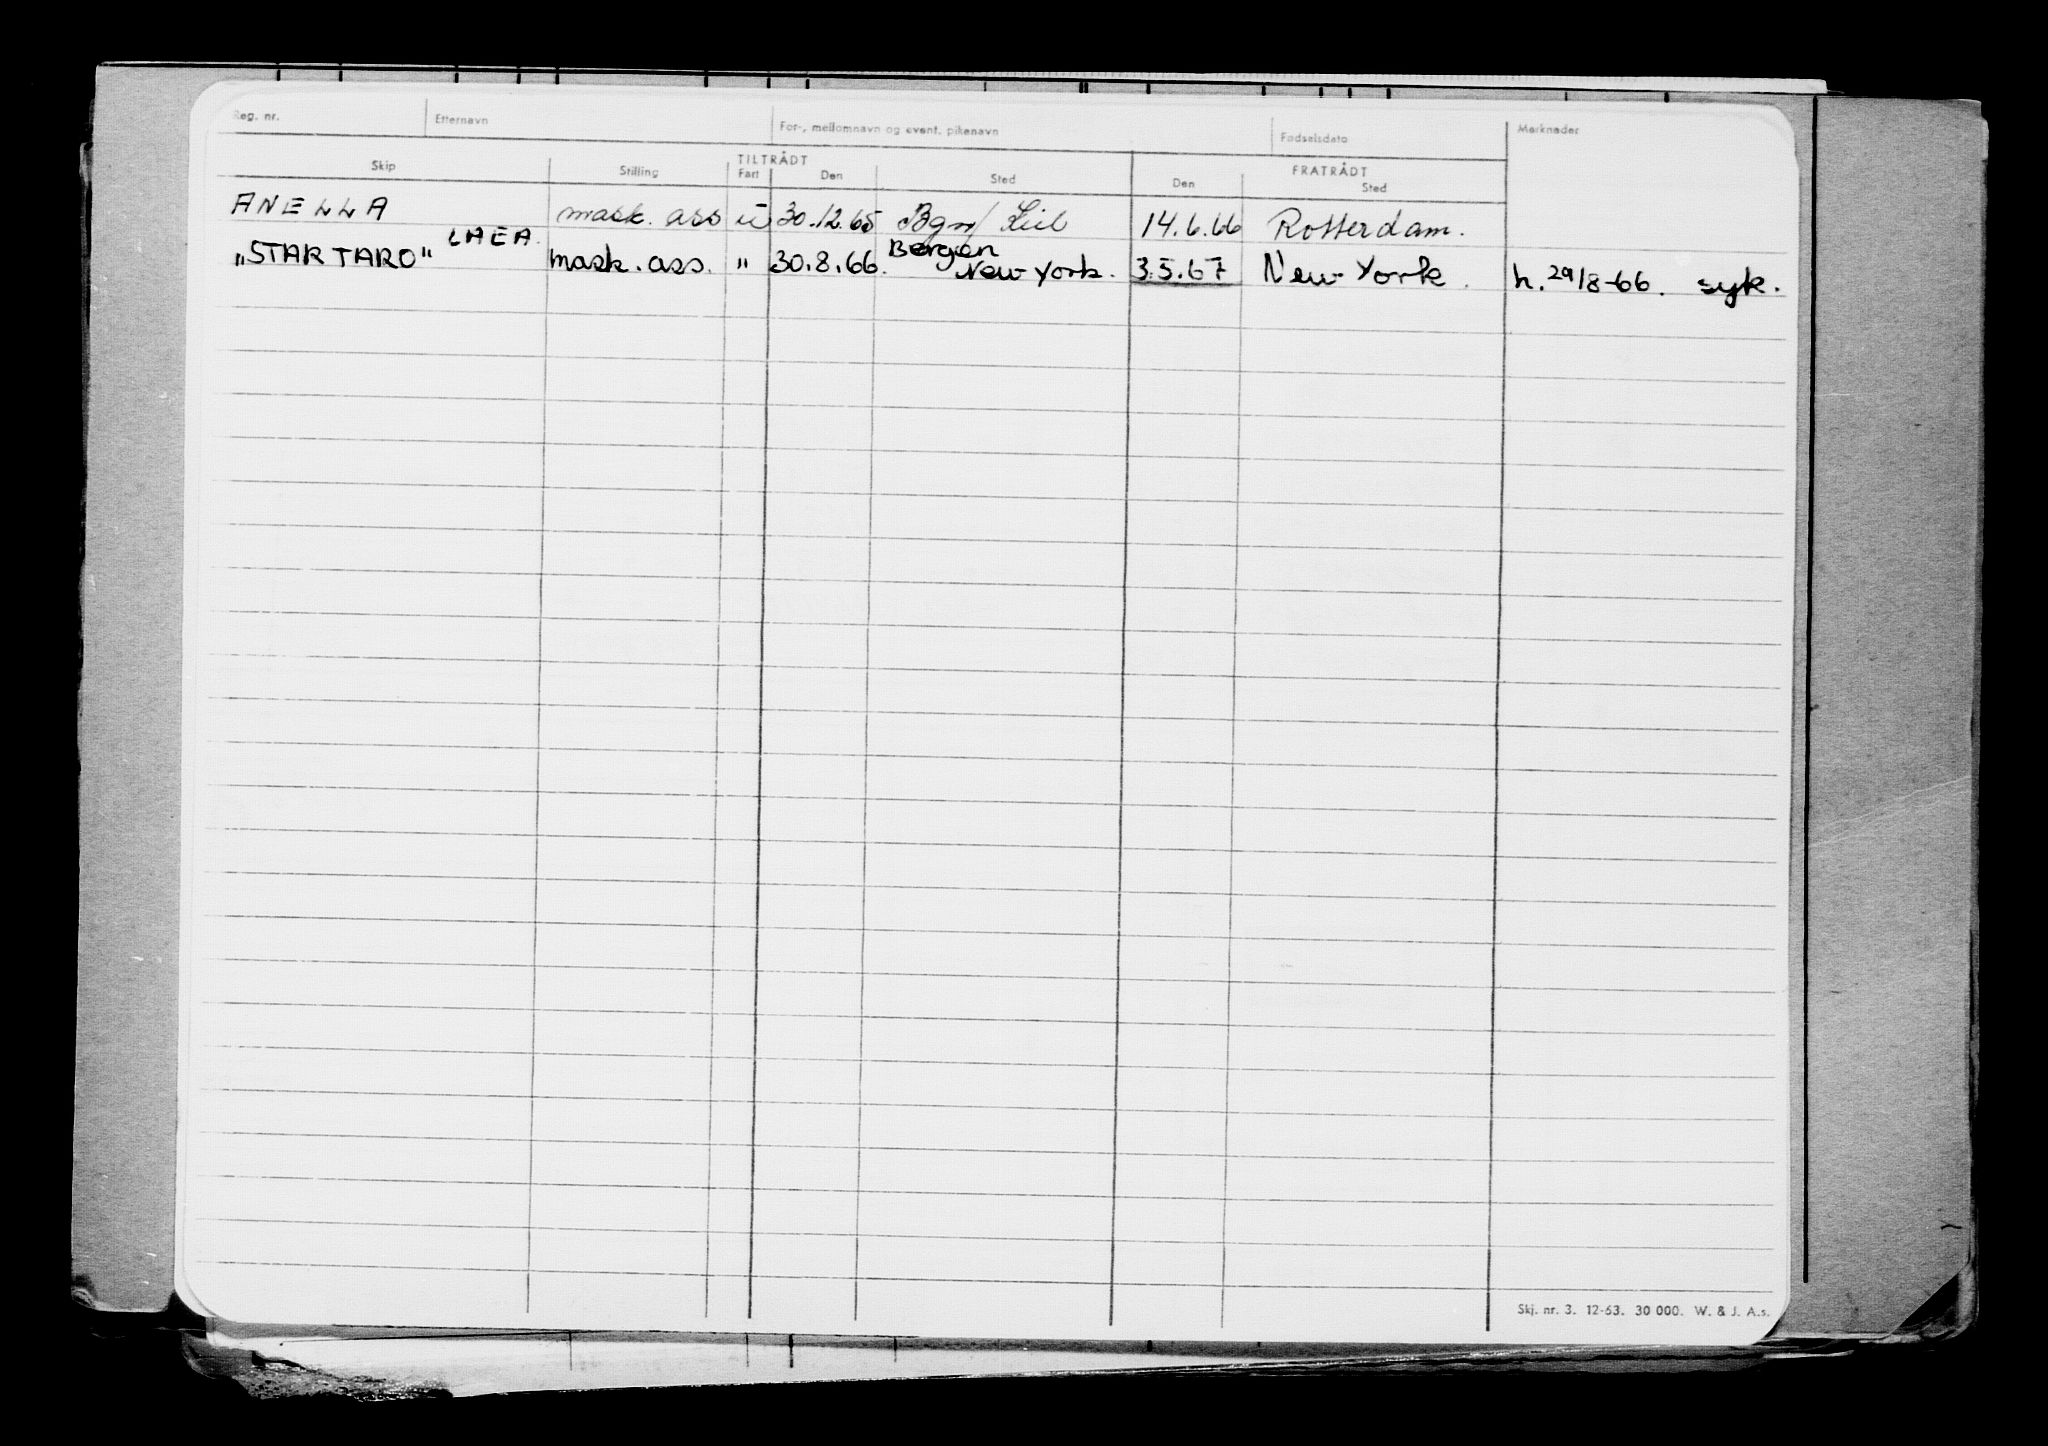 Reg. nr. Etternavn For-, mellomnavn og event. pikenavn Fødselsdato Merknader
Skip Stilling TILTRÅDT Fart Den Sted FRATRÅDT Den Sted
ANELLA mask. ass u 30.12.65 Bgn/ Kiel 14.6.66 Rotterdam.
LAEA.
"STAR TARO" mask. ass. " 30.8.66. Bergen New York. 3.5.67 New York. h. 29/8-66. syk.
Skj. nr. 3. 12-63. 30 000. W. & J. A.s.